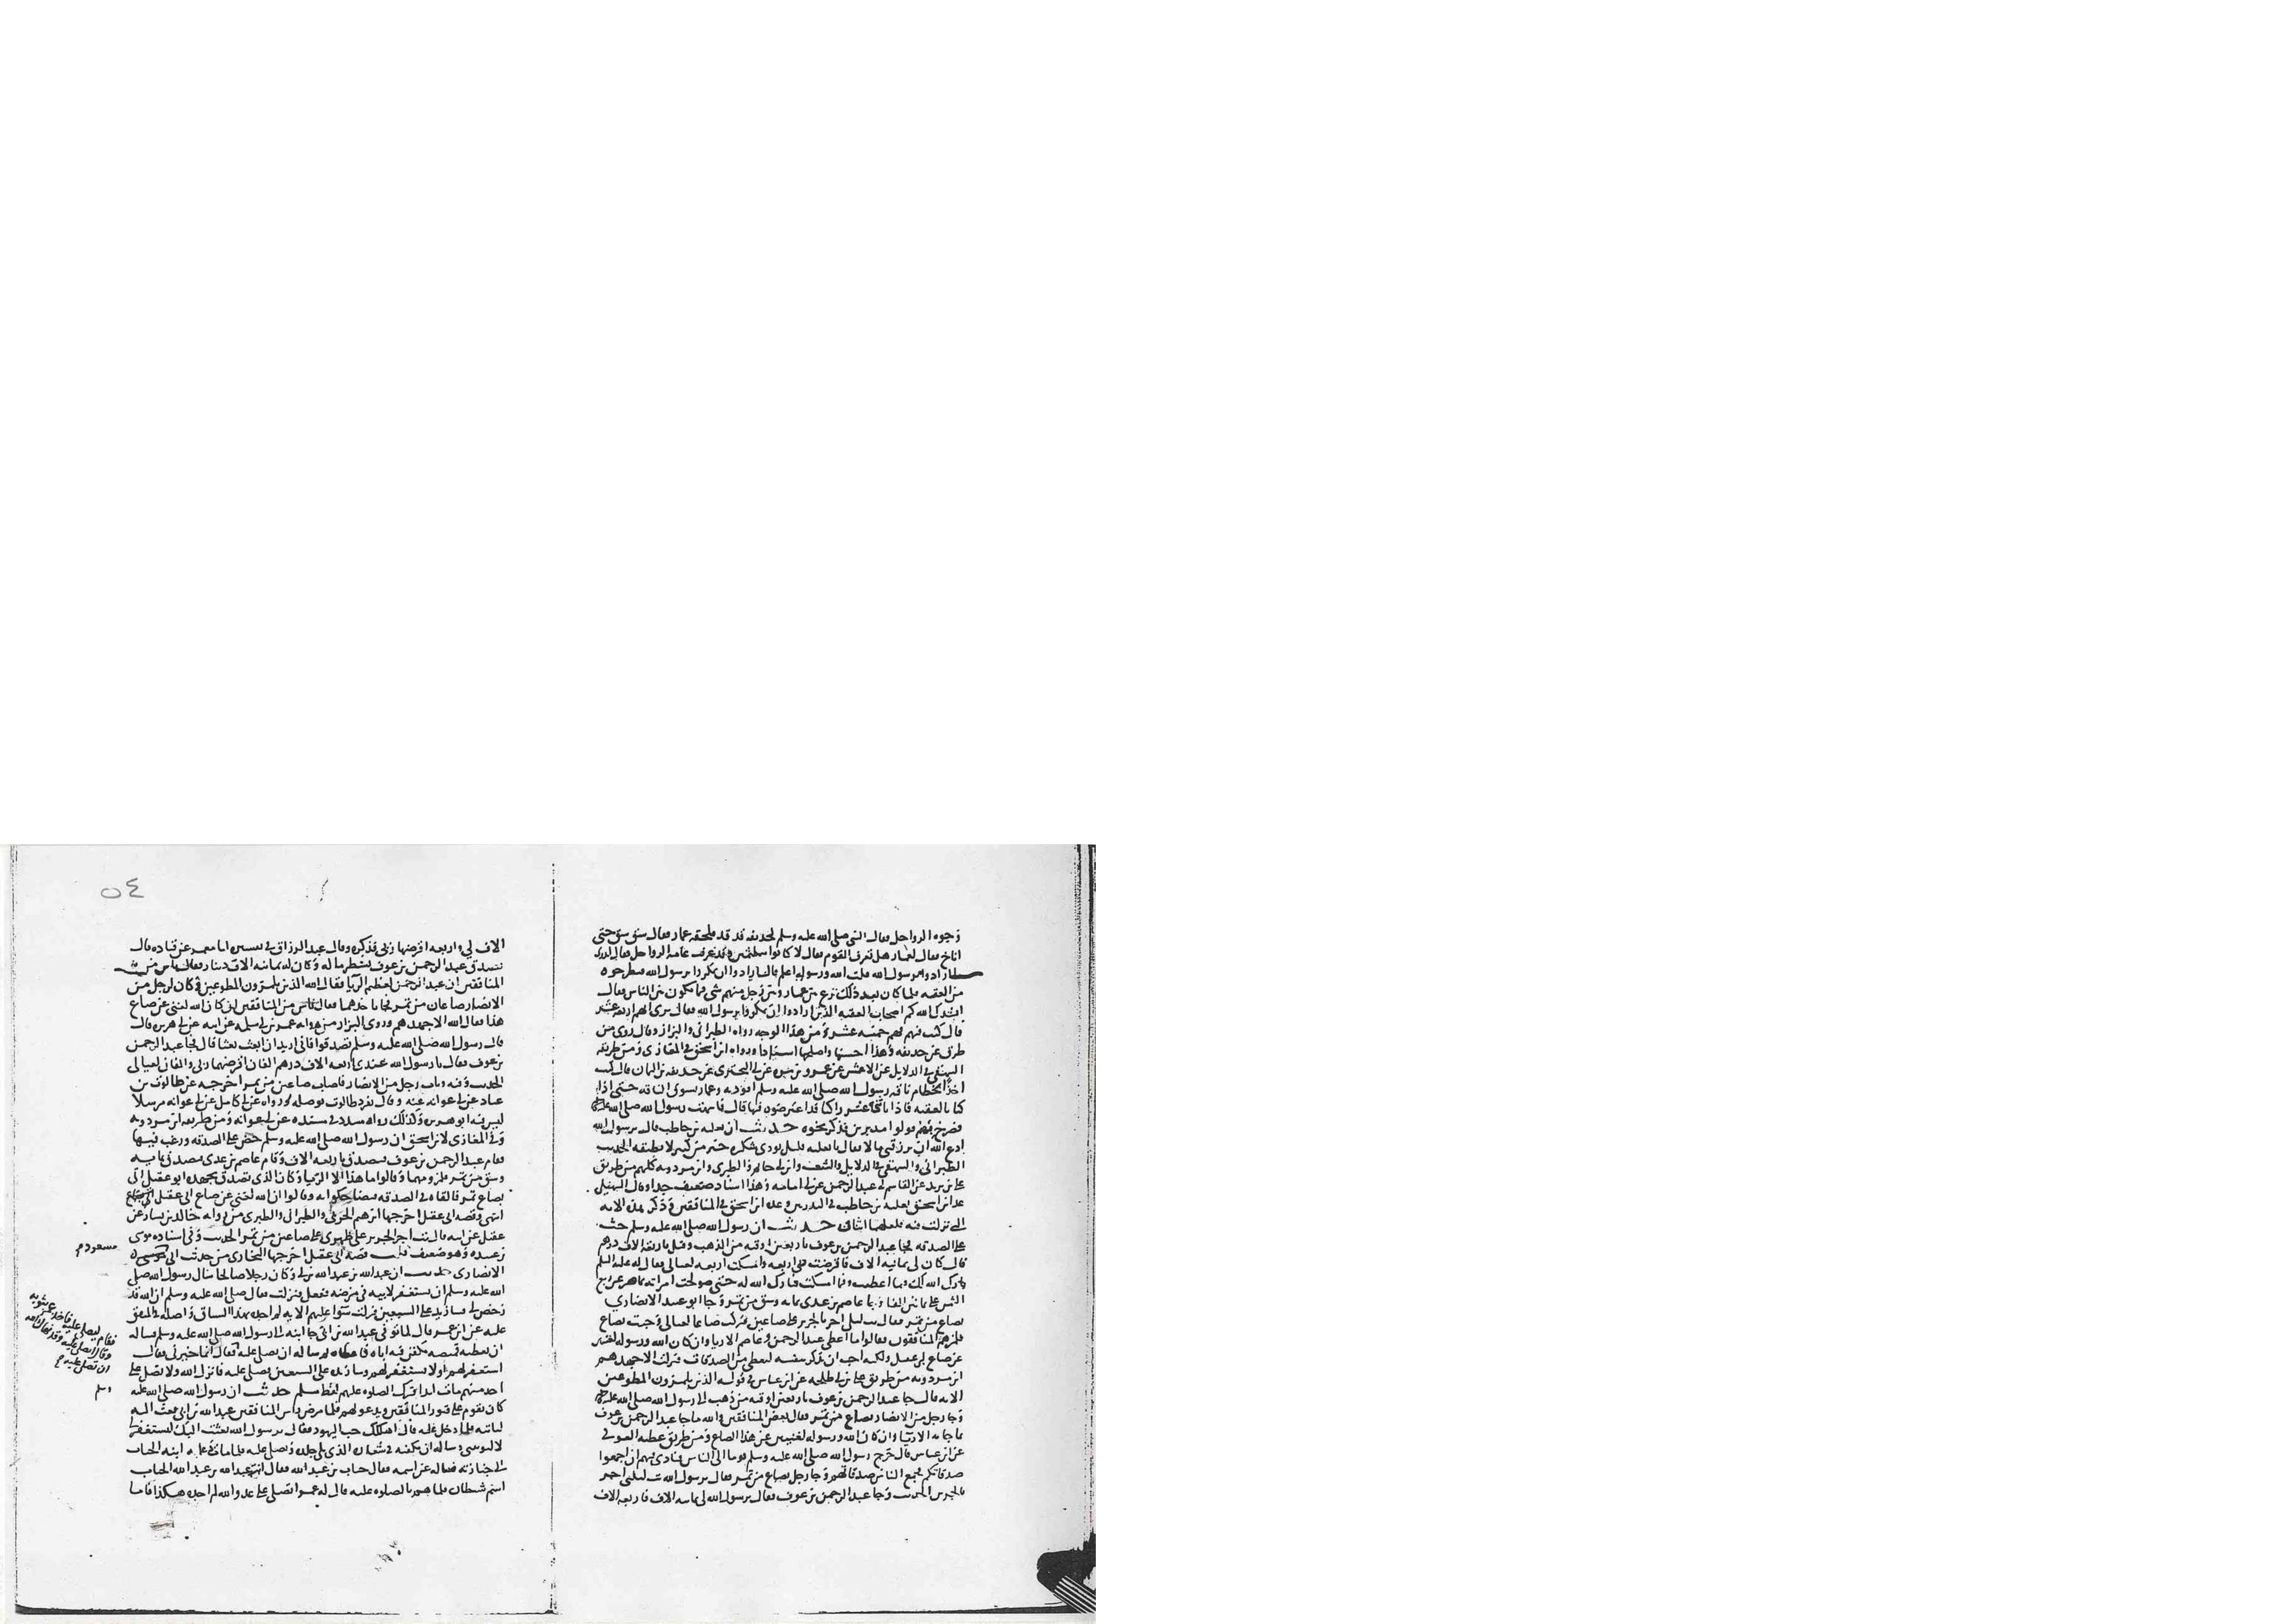 وجوه الرواحل فقال النبي صلى الله عليه وسلم لحذيفه قد قد فلحقه عمار فقال سق سق حتى
اناخ فقال لعمار هل تعرف القوم فقال لا كانوا متلثمين وقد عرفت عامه الرواحل فقال اتدري
ما ارادوا برسول الله قلت الله ورسوله اعلم قال ارادوا ان يمكروا برسول الله فيطرحوه
من العقبه فلما كان بعد ذلك نزع بين عمار وبين رجل منهم شي مما يكون بين الناس فقال
انشدك الله كم اصحاب العقبه الذين ارادوا ان يمكروا برسول الله فقال نرى انهم اربعه عشر
قال كنت فيهم فهم خمسه عشر ومن هذا الوجه رواه الطبراني والبزار وقال روي من
طرق عن حذيفه وهذا احسنها واصلحها اسنادا ورواه ابن اسحق في المغازي ومن طريقه
البيهقي في الدلايل عن الاعمش عن عمرو بن مره عن ابي البختري عن حذيفه بن اليمان قال كنت
اخذا بخطام ناقه رسول الله صلى الله عليه وسلم اقود به وعمار يسوق الناقه حتى اذا
كنا بالعقبه فاذا باثني عشر راكبا قد اعترضوه فيها قال فانبهت رسول الله صلى الله عليه
فصرخ بهم فولوا مدبرين فذكر نحوه حديث ان ثعلبه بن حاطب قال يرسول الله
ادع الله ان يرزقني مالا فقال يا ثعلبه قليل تودي شكره خير من كثير لا تطيقه الحديث
الطبراني والبيهقي في الدلايل والشعب وابن ابي حاتم والطبري وابن مردويه كلهم من طريق
علي بن يزيد عن القاسم بن عبد الرحمن عن ابي امامه وهذا اسناد ضعيف جدا وقال السهيلي
عد ابن اسحق ثعلبه بن حاطب في البدريين وعده ابن اسحق في المنافقين وذكر هذه الايه
التي نزلت فيه فلعلهما اثنان حديث ان رسول الله صلى الله عليه وسلم حث
على الصدقه فجا عبد الرحمن بن عوف باربعين اوقيه من الذهب وقيل باربعه الاف درهم
قال كان لي ثمانيه الاف فاقرضت ربي اربعه وامسكت اربعه لعيالي فقال له عليه السلم
بارك الله لك فيما اعطيت وفيما امسكت فبارك الله له حتى صولحت امراته تماضر عن ربع
الثمن على ثمانين الفا وجا عاصم بن عدي بمايه وسق من تمر وجا ابو عقيل الانصاري
بصاع من تمر فقال بت ليلتي اجر بالجرير على صاعين فتركت صاعا لعيالي وجيت بصاع
فلمزهم المنافقون فقالوا ما اعطى عبد الرحمن وعاصم الا ريا وان كان الله ورسوله لغنيين
عن صاع ابي عقيل ولكنه احب ان يذكر بنفسه ليعطى من الصدقات فنزلت الا جهدهم
ابن مردويه من طريق علي بن ابي طلحه عن ابن عباس في قوله الذين يلمزون المطوعين
الايه قال جا عبد الرحمن بن عوف باربعين اوقيه من ذهب الى رسول الله صلى الله عليه
وجا رجل من الانصار بصاع من تمر فقال بعض المنافقين والله ما جا عبد الرحمن بن عوف
بما جا به الا ريا وان كان الله ورسوله لغنيين عن هذا الصاع ومن طريق عطيه العوفي
عن ابن عباس قال خرج رسول الله صلى الله عليه وسلم يوما الى الناس فنادى فيهم ان اجمعوا
صدقاتكم فجمع الناس صدقاتهم وجا رجل بصاع من تمر فقال يرسول الله بت ليلتي اجر
بالجرير الحديث وجا عبد الرحمن بن عوف فقال يرسول الله لي ثمانيه الاف فاربعه الاف
٥٤
الاف لي واربعه اقرضها ربي فذكره وقال عبد الرزاق في تفسيره انا معمر عن قتاده قال
تصدق عبد الرحمن بن عوف بشطر ماله وكان له ثمانيه الاف دينار فقال ناس من
المنافقين ان عبد الرحمن لعظيم الريا فقال الله الذين يلمزون المطوعين وكان لرجل من
الانصار صاعان من تمر فجا باحدهما فقال ناس من المنافقين ان كان الله لغني عن صاع
هذا فقال الله الا جهدهم وروى البزار من روايه عمر بن ابي سلمه عن ابيه عن ابي هريره قال
قال رسول الله صلى الله عليه وسلم تصدقوا فاني اريد ان ابعث بعثا قال فجا عبد الرحمن
بن عوف فقال يا رسول الله عندي اربعه الاف درهم الفان اقرضهما ربي والفان لعيالي
الحديث وفيه وبات رجل من الانصار فاصاب صاعين من تمر اخرجه عن طالوت بن
عباد عن ابي عوانه عنه وقال تفرد طالوت بوصله ورواه عن ابي كامل عن ابي عوانه مرسلا
ليس فيه ابو هريره وكذلك رواه مسدد في مسنده عن ابي عوانه ومن طريقه ابن مردويه
وفي المغازي لابن اسحق ان رسول الله صلى الله عليه وسلم حض على الصدقه ورغب فيها
فقام عبد الرحمن بن عوف فتصدق باربعه الاف وقام عاصم بن عدي فتصدق بمايه
وسق من تمر فلمزوهما وقالوا ما هذا الا الريا وكان الذي تصدق بجهده ابو عقيل اتى
بصاع تمر فالقاه في الصدقه فتضاحكوا به وقالوا ان الله لغني عن صاع ابي عقيل
انتهى وقصه ابي عقيل اخرجها ابرهيم الحربي والطبراني والطبري من روايه خالد بن يسار عن
عقيل عن ابيه قال بت اجر الجرير على ظهري على صاعين من تمر الحديث وفي اسناده موسى
بن عبيده وهو ضعيف قلت قصه ابي عقيل اخرجها البخاري من حديث ابي
مسعود
الانصاري حديث ان عبد الله بن عبد الله بن ابي وكان رجلا صالحا سال رسول الله صلى
الله عليه وسلم ان يستغفر لابيه في مرضه ففعل فنزلت فقال صلى الله عليه وسلم ان الله قد
رخص لي فسازيد على السبعين فنزلت سوا عليهم الايه لم اجده بهذا السياق واصله في المتفق
عليه عن ابن عمر قال لما توفي عبد الله بن ابي جا ابنه الى رسول الله صلى الله عليه وسلم فساله
ان يعطيه قميصه يكفن فيه اباه فاعطاه ثم ساله ان يصلي عليه فقال انما خيرني فقال
فقام ليصلي عليه فاخذ عمر بثوبه
وقال اتصلي عليه وقد نهاك الله
ان تصلي عليه
استغفر لهم او لا تستغفر لهم وسازيده على السبعين فصلى عليه فانزل الله ولا تصل على
احد منهم مات ابدا فترك الصلوه عليهم لفظ مسلم حديث ان رسول الله صلى الله عليه
وسلم
كان يقوم على قبور المنافقين ويدعو لهم فلما مرض راس المنافقين عبد الله بن ابي بعث اليه
لياتيه فلما دخل عليه قال اهلكك حب اليهود فقال يرسول الله بعثت اليك لتستغفر لي
لا لتونبني وساله ان يكفنه في شعاره الذي يلي جلده ويصلي عليه فلما مات دعاه ابنه الحباب
الى جنازته فساله عن اسمه فقال حباب بن عبد الله فقال انت عبد الله بن عبد الله الحباب
اسم شيطان فلما هم بالصلوه عليه قال له عمر اتصلي على عدو الله لم اجده هكذا فاما